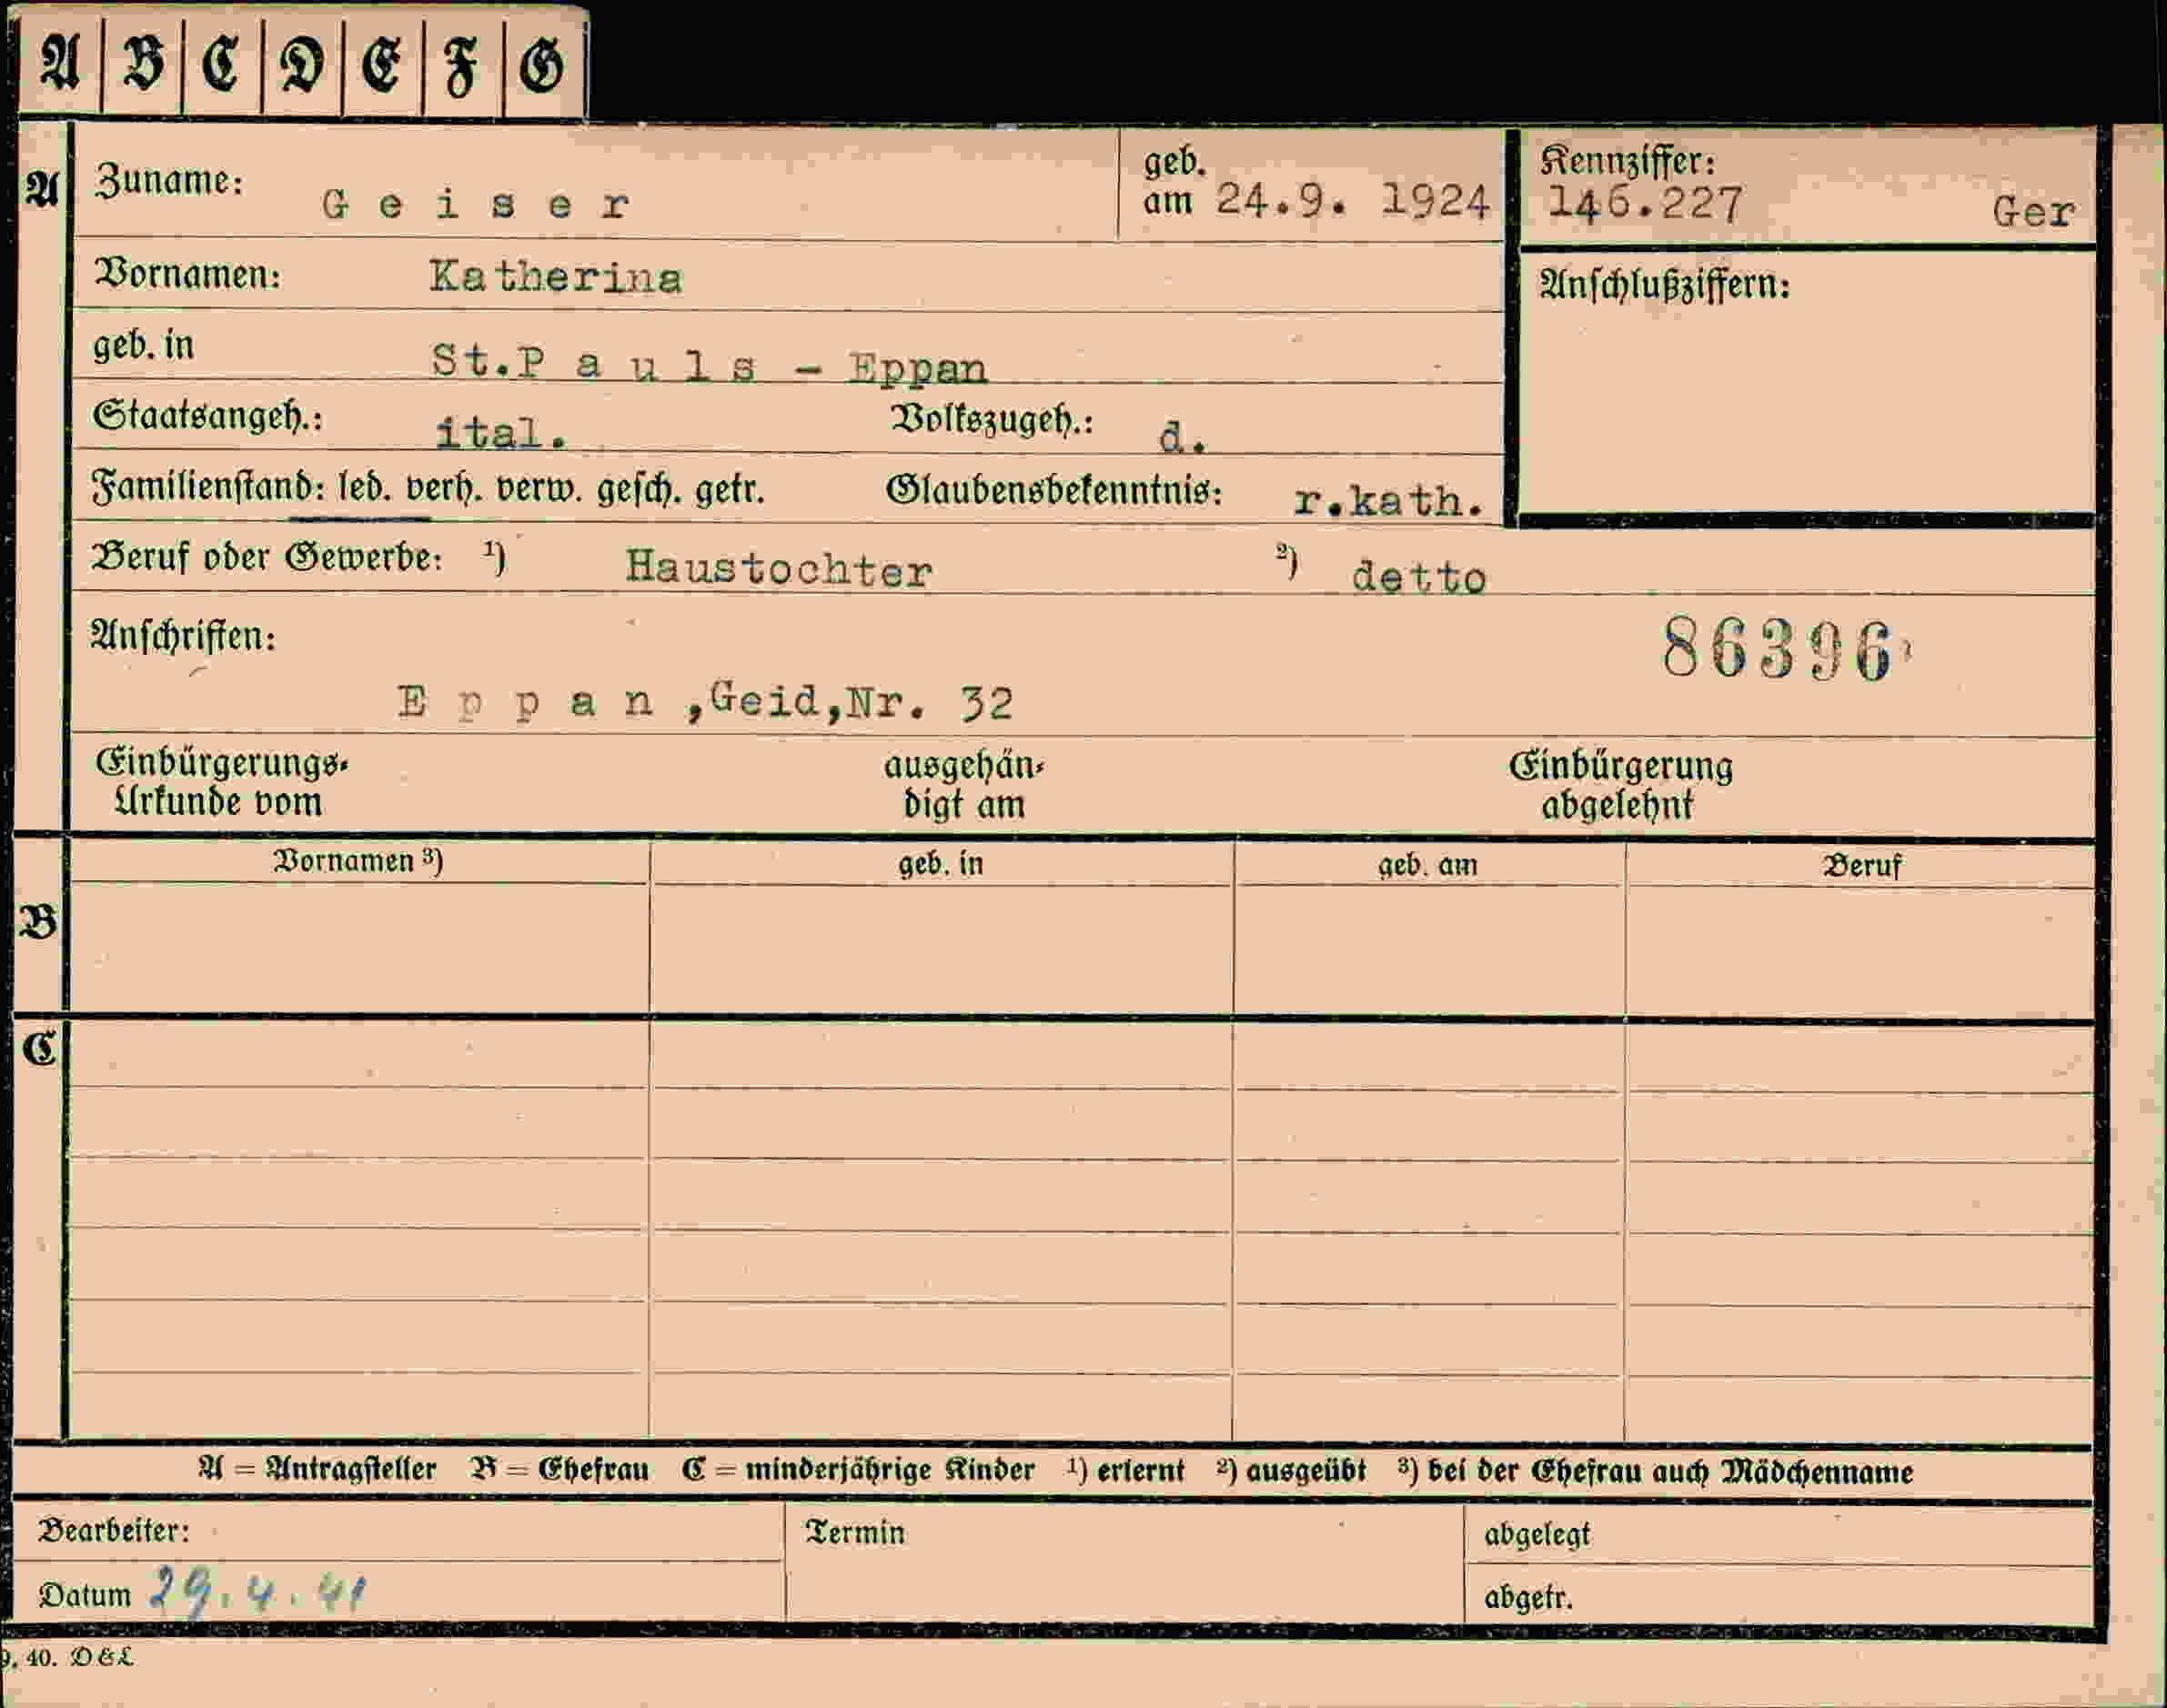 A B C D E F G
A Zuname: Geiser geb. am 24.9. 1924 Kennziffer: 146.227 Ger
Vornamen: Katherina Anschlußziffern:
geb. in St.Pauls - Eppan
Staatsangeh.: ital. Volkszugeh.: d.
Familienstand: led. verh. verw. gesch. getr. Glaubensbekenntnis: r.kath.
Beruf oder Gewerbe: ¹) Haustochter ²) detto
Anschriften: 86396
Eppan,Geid,Nr. 32
Einbürgerungs- ausgehän- Einbürgerung
Urkunde vom digt am abgelehnt
Vornamen ³) geb. in geb. am Beruf
B
C
A = Antragsteller B = Ehefrau C = minderjährige Kinder ¹) erlernt ²) ausgeübt ³) bei der Ehefrau auch Mädchenname
Bearbeiter: Termin abgelegt
Datum 29.4.41 abgetr.
9. 40. D&L